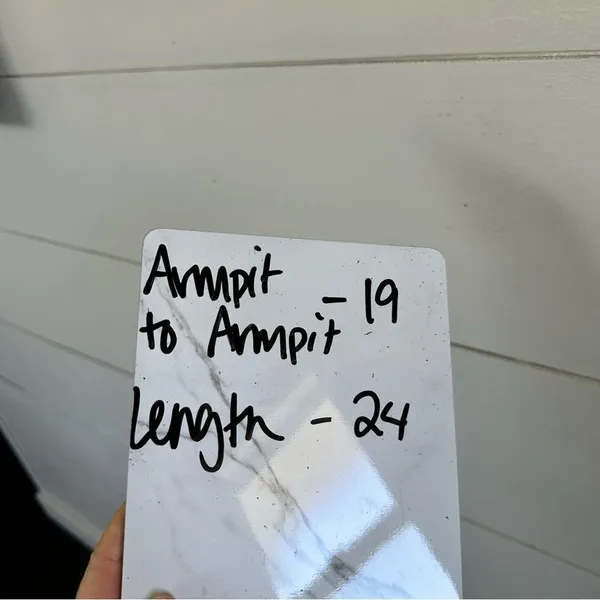 Armpit
to Armpit - 19
Length - 24